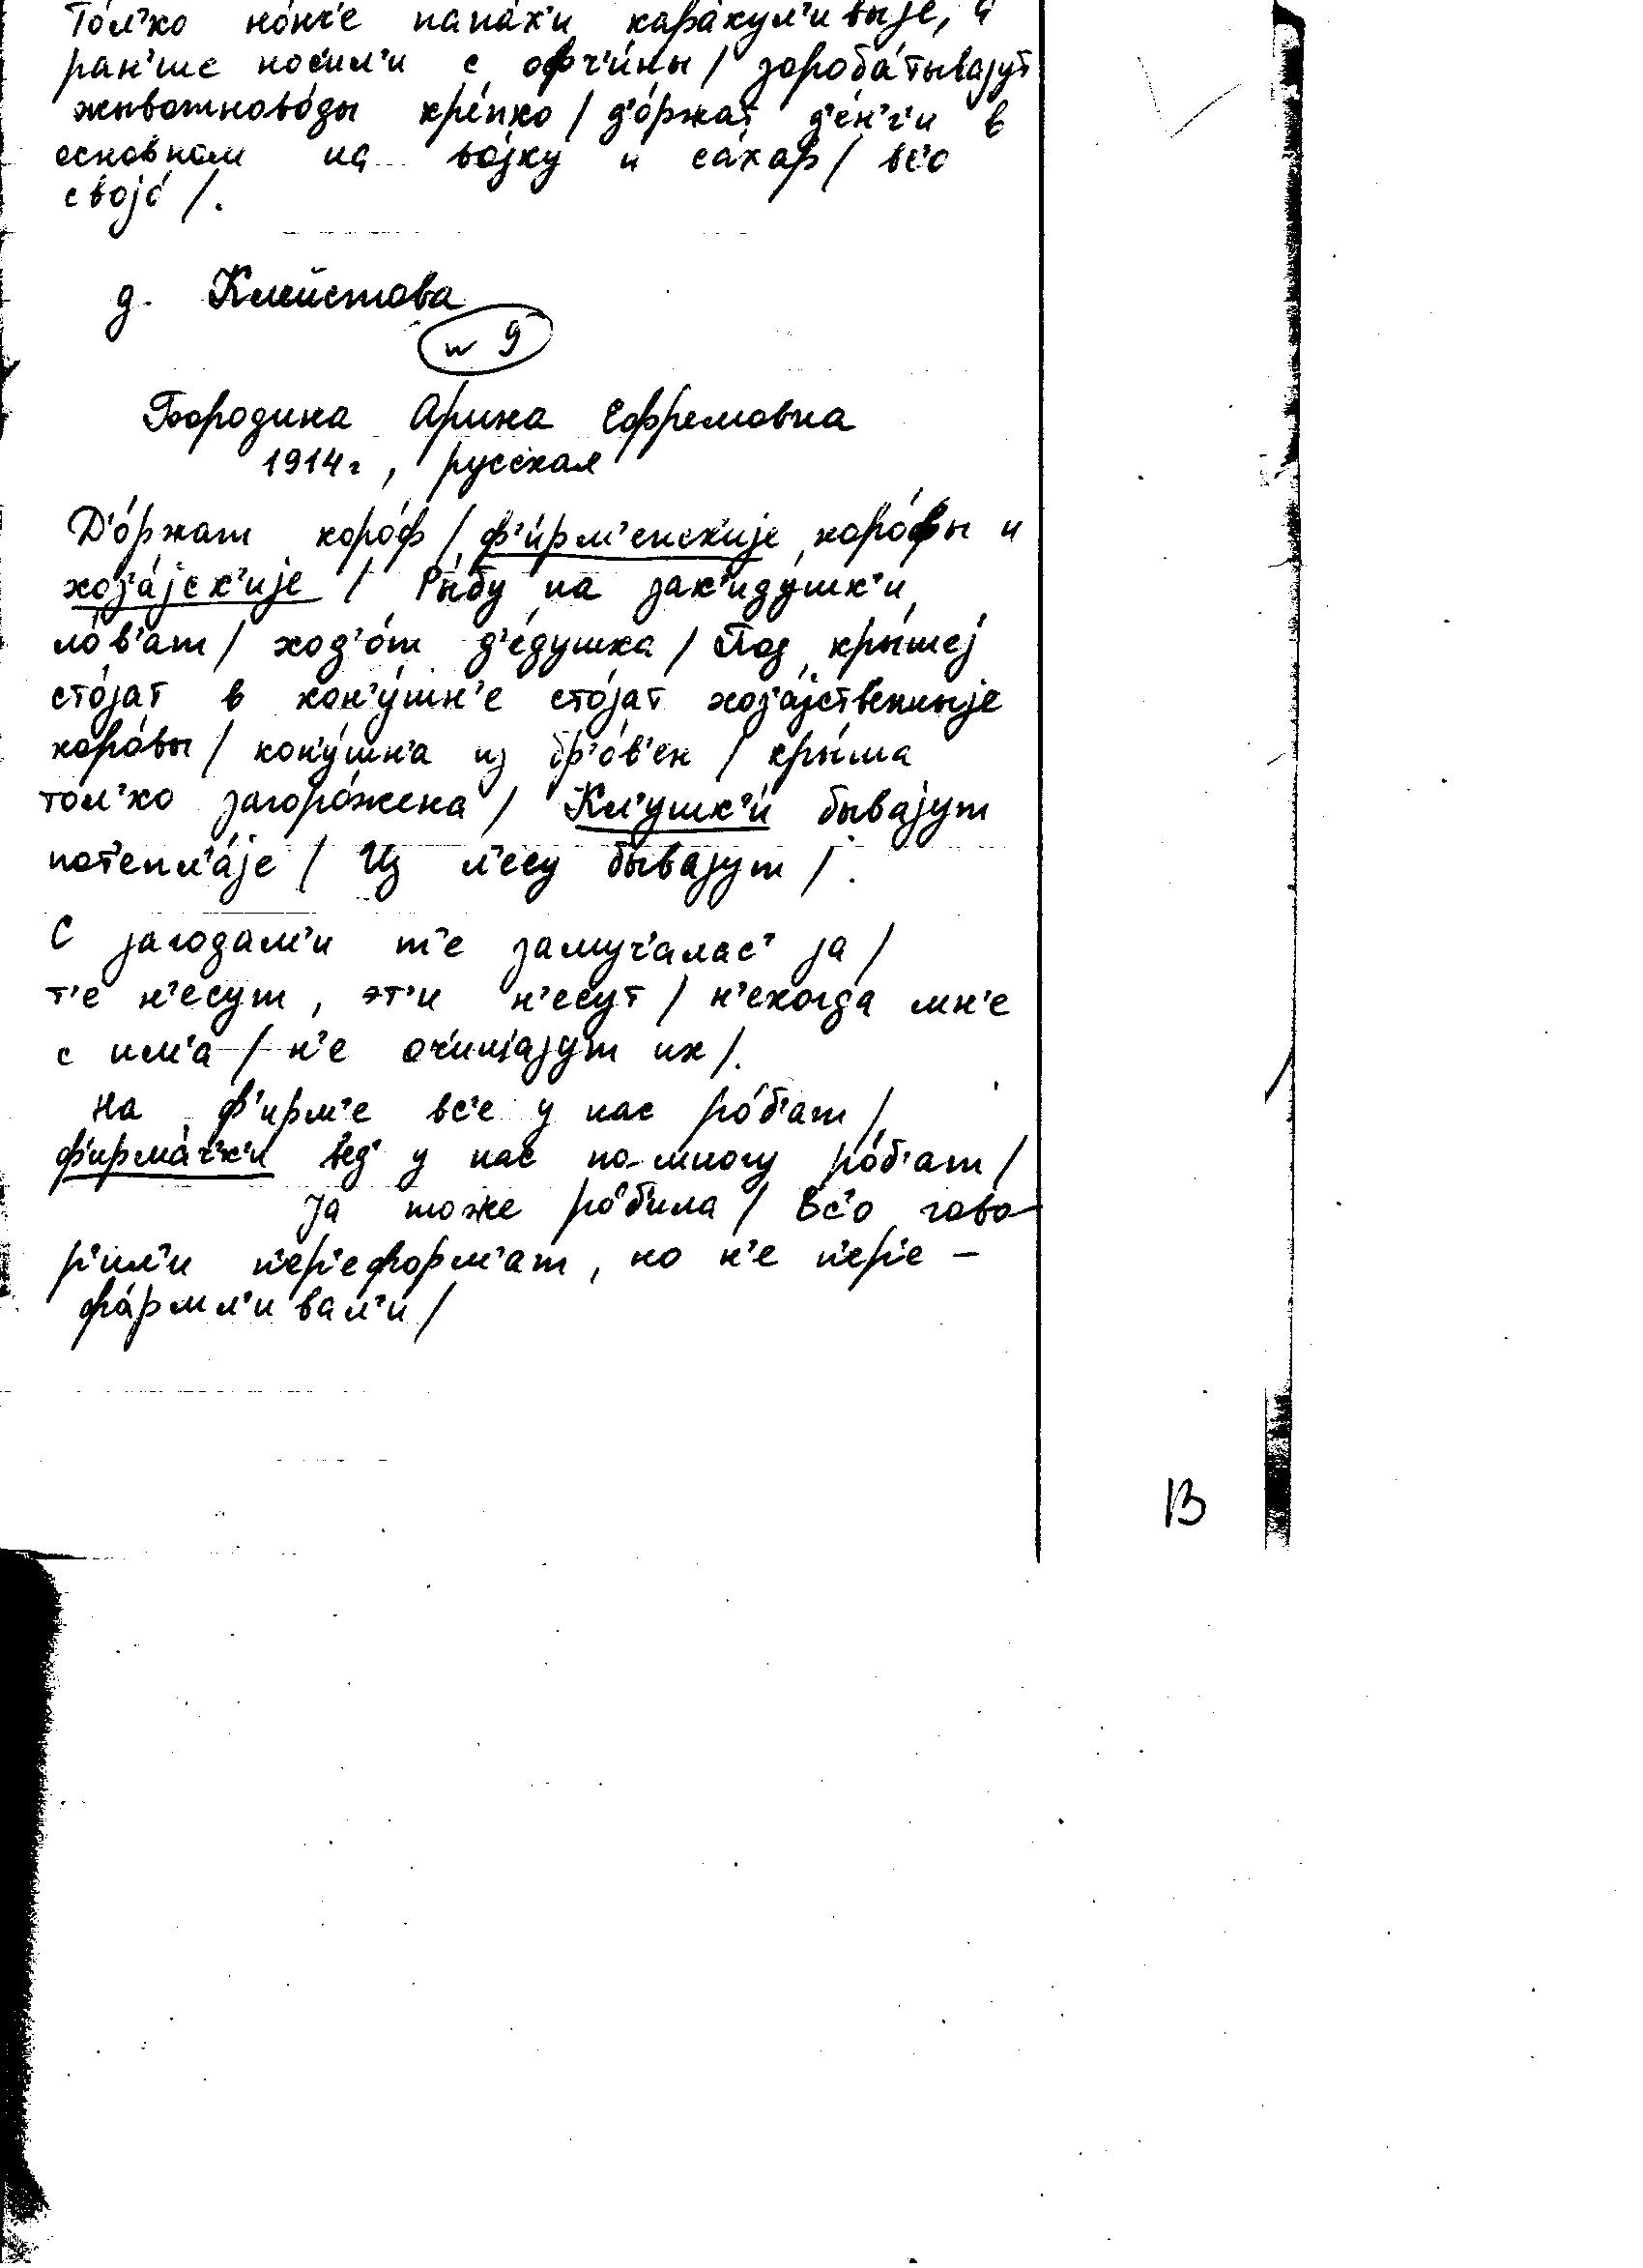 То́л'ко но́нч'е папа́х'и кара́кул'ивыје, а
ран'ше нос'ил'и с офч'и́ны / зароба́тывајут
жывотново́ды кре́пко / д'о́ржат д'е́н'г'и в
основном на во́јку и са́хар / вс'о
својо́ /.
д. Клейстова
№ 9
Бородина Арина Ефремовна
1914 г, русская
Д'о́ржат коро́ф / ф'и́рм'енск'ије коро́вы и
хоз'а́јск'ије / Ры́бу на зак'иду́шк'и
ло́в'ат / ход'о́т д'е́душка / Под кры́шеј
сто́јат в кон'у́шн'е сто́јат хоз'а́јственныје
коро́вы / кон'у́шн'а из бр'о́в'ен / кры́ша
то́л'ко загоро́жена / Кл'ушк'и́ бывајут
пот'епл'а́је / Из л'есу бывајут /.
С јагодам'и т'е замуч'алас' ја /
т'е н'есут, эт'и н'есут / н'екогда мн'е
с им'а / н'е оч'ищајут их /.
На ф'ирм'е вс'е у нас ро́б'ат /
ф'ирма́ч'к'и вед' у нас по-многу ро́б'ат /
Ја тоже ро́б'ила / Вс'о гово-
р'ил'и п'ер'еформ'ат, но н'е п'ер'е-
фа́рмл'ивал'и /
13